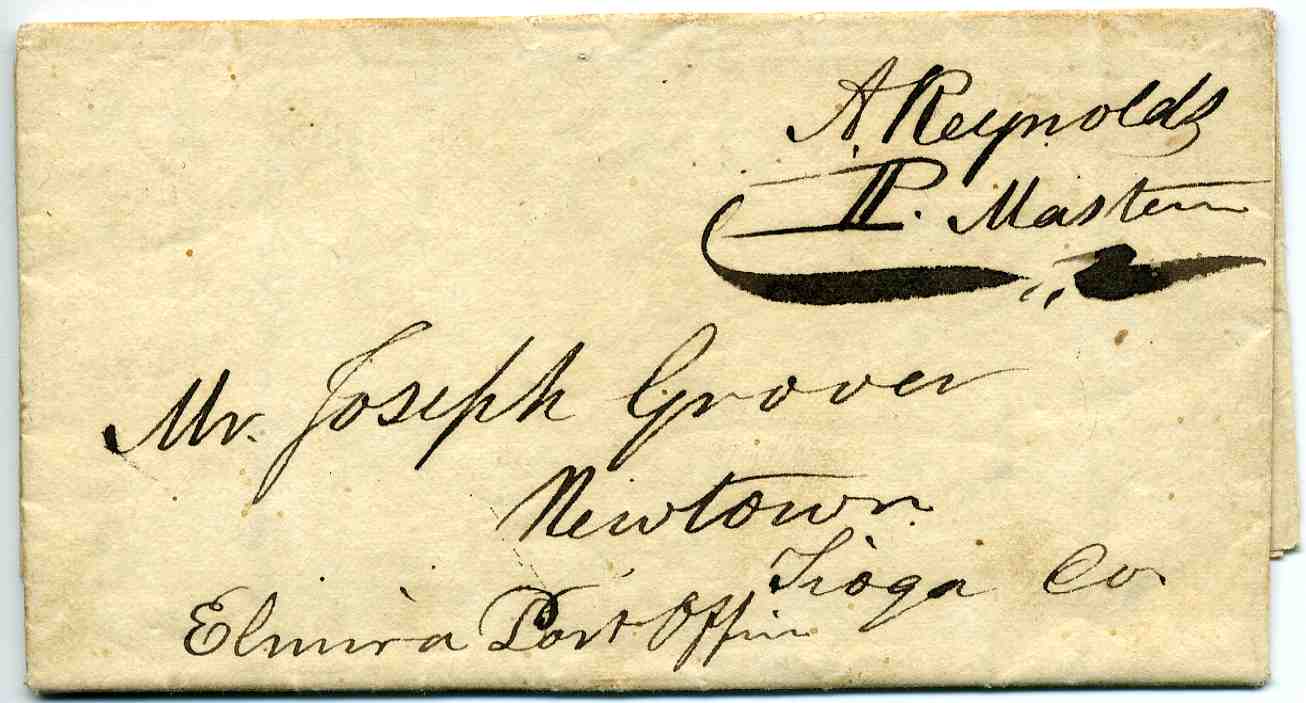 A. Reynolds
P. Master
Mr. Joseph Grover
Newtown
Tioga Co
Elmira Post Office